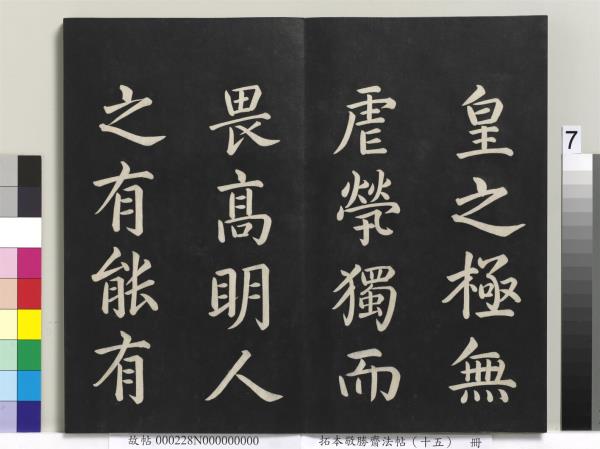 皇之極無
虐煢獨而
畏髙明人
之有能有
7
故帖 000228N000000000
拓本敬勝齋法帖（十五） 冊